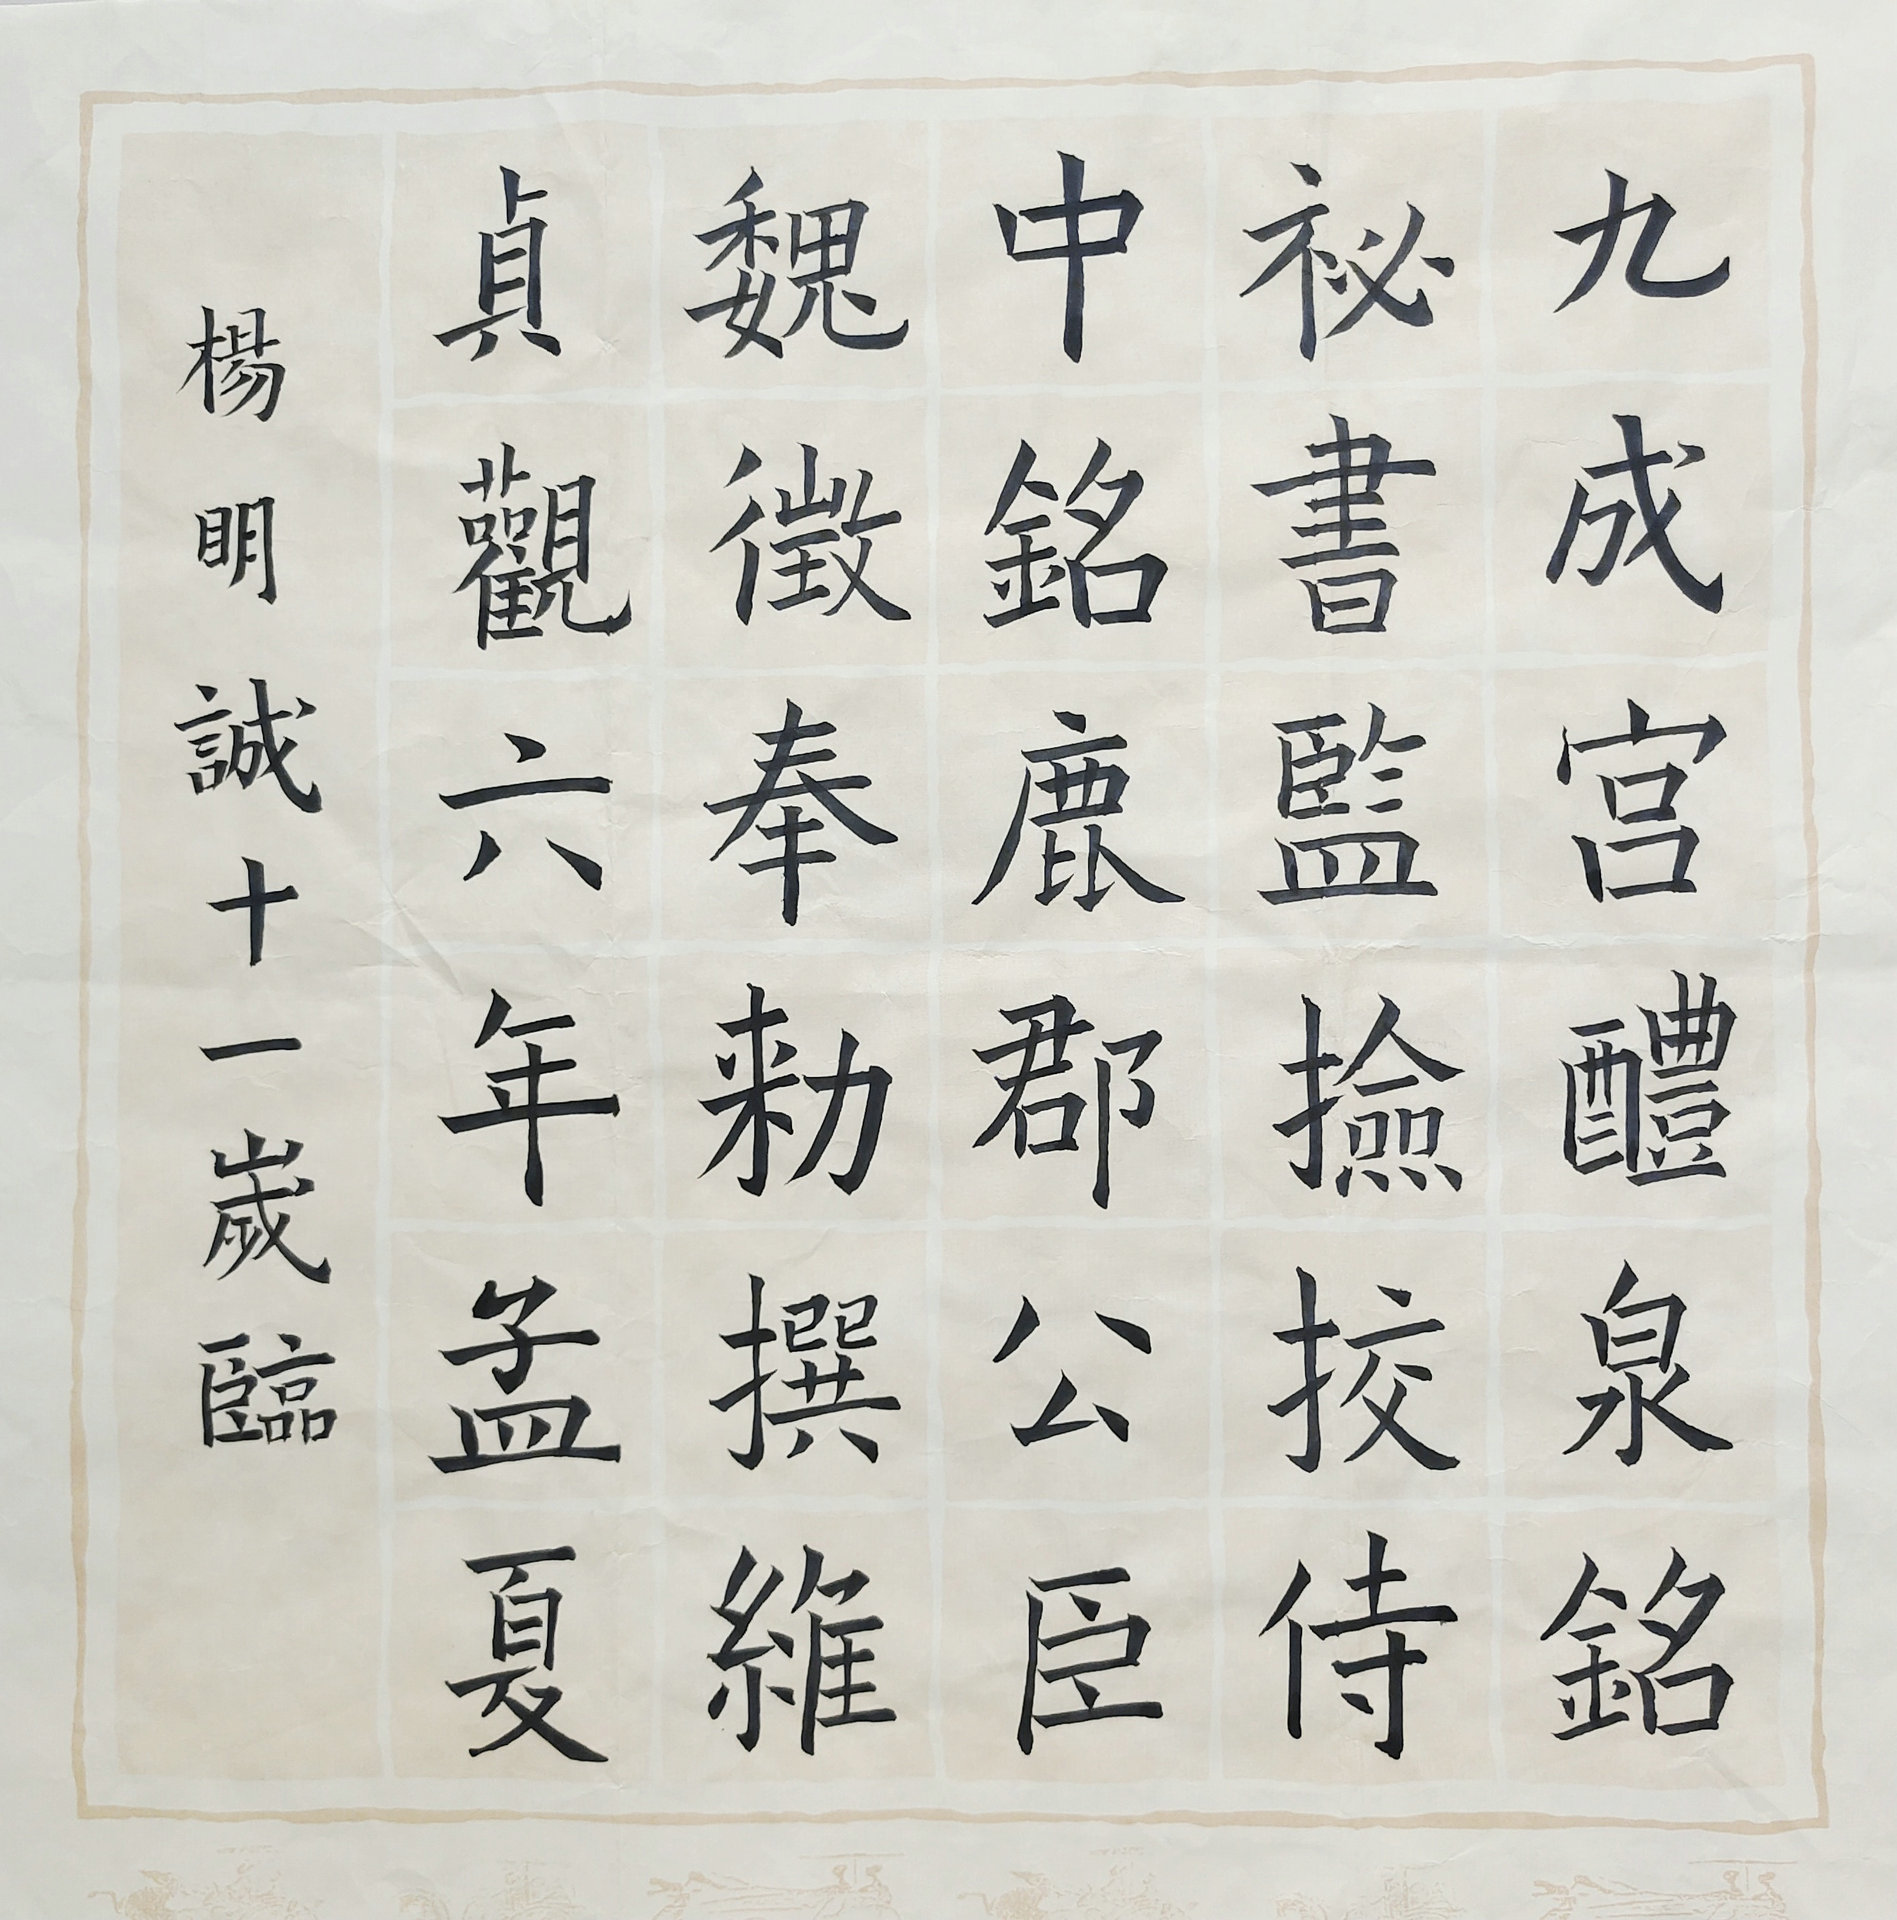 九成宫醴泉銘
祕書監撿挍侍
中銘鹿郡公臣
魏徵奉勑撰維
貞觀六年孟夏
楊明誠十一嵗臨